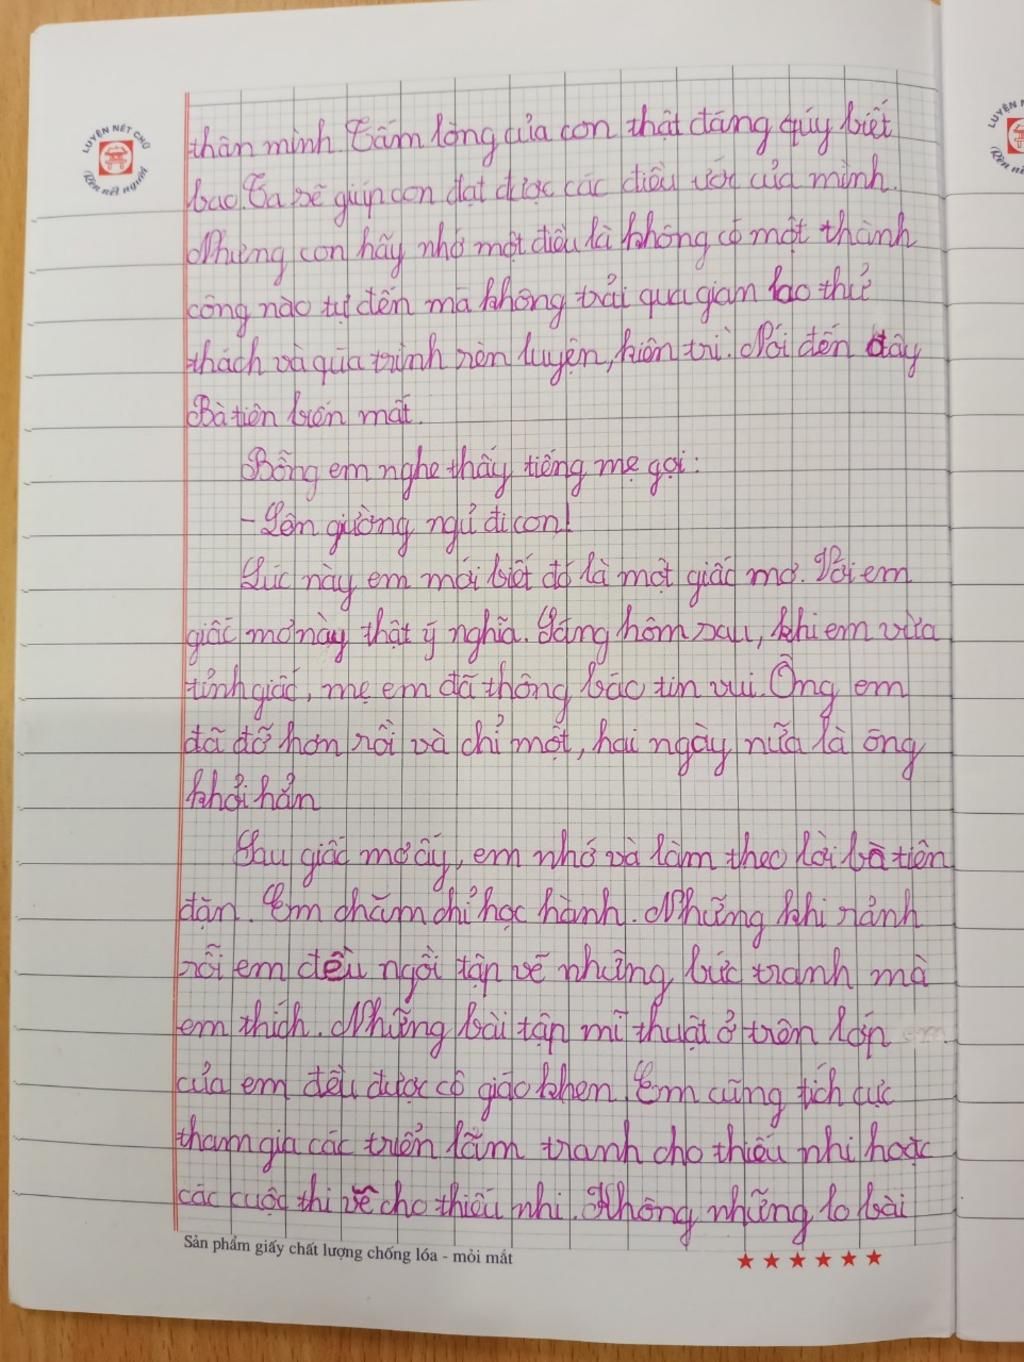 LUYỆN NÉT CHỮ
Rèn nết người
thân mình. Tấm lòng của con thật đáng quý biết
bao. Ta sẽ giúp con đạt được các điều ước của mình.
Nhưng con hãy nhớ một điều là không có một thành
công nào tự đến mà không trải qua gian lao thử
thách và quá trình rèn luyện, kiên trì. Nói đến đây
Bà tiên biến mất.
Bỗng em nghe thấy tiếng mẹ gọi:
- Lên giường ngủ đi con!
Lúc này em mới biết đó là một giấc mơ. Với em
giấc mơ này thật ý nghĩa. Sáng hôm sau, khi em vừa
tỉnh giấc, mẹ em đã thông báo tin vui. Ông em
đã đỡ hơn rồi và chỉ một, hai ngày nữa là ông
khỏi hẳn
Sau giấc mơ ấy, em nhớ và làm theo lời bà tiên
dặn. Em chăm chỉ học hành. Những khi rảnh
rỗi em đều ngồi tập vẽ những bức tranh mà
em thích. Những bài tập mĩ thuật ở trên lớp
của em đều được cô giáo khen. Em cũng tích cực
tham gia các triển lãm tranh cho thiếu nhi hoặc
các cuộc thi vẽ cho thiếu nhi. Không những lo bài
Sản phẩm giấy chất lượng chống lóa - mỏi mắt